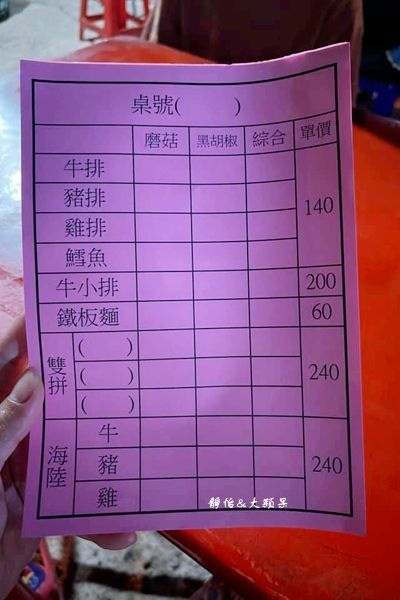 桌號(　　)
磨菇 黑胡椒 綜合 單價
牛排
豬排
雞排
鱈魚
140
牛小排 200
鐵板麵 60
雙拼
(　　)
(　　)
(　　)
240
海陸
牛
豬
雞
240
靜怡&大顆呆